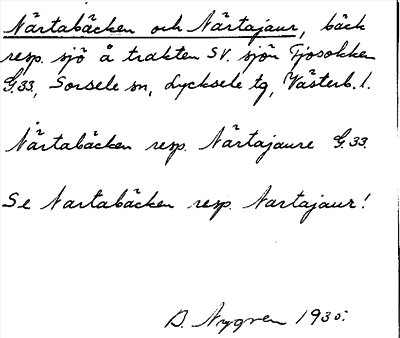 Närtabäcken och Närtajaur, bäck
resp. sjö å trakten SV. sjön Tjosokken
G.33, Sorsele sn, Lycksele tg, Västerb. l.
Närtabäcken resp. Närtajaure G.33.
Se Nartabäcken resp. Nartajaur!
B. Nygren 1930.